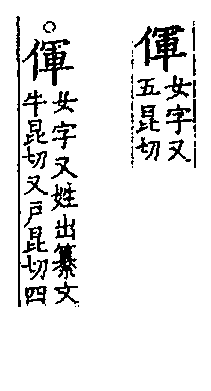 㑮
女字又
五昆切
㑮
女字又姓出纂文
牛昆切又戶昆切四